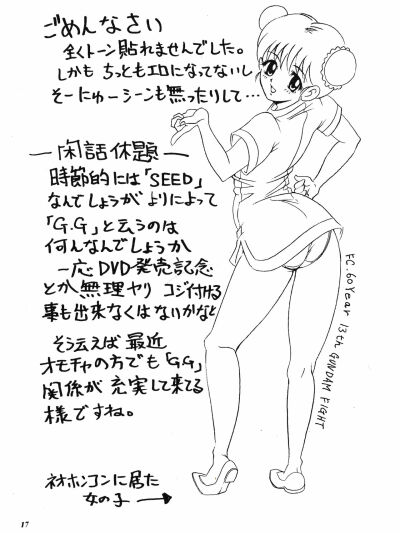 ごめんなさい
全くトーン貼れませんでした。
しかも ちっともエロになってないし
そーにゅーシーンも無ったりして…
―閑話休題―
時節的には「SEED」
なんでしょうがよりによって
「G.G」と云うのは
何んなんでしょうか
一応DVD発売記念
とか無理ヤリ コジ付ける
事も出来なくはないかなと
そう云えば 最近
オモチャの方でも「G.G」
関係が 充実して来てる
様ですね。
ネオホンコンに居た
女の子→
FC.60Year 13th GUNDAM FIGHT
17